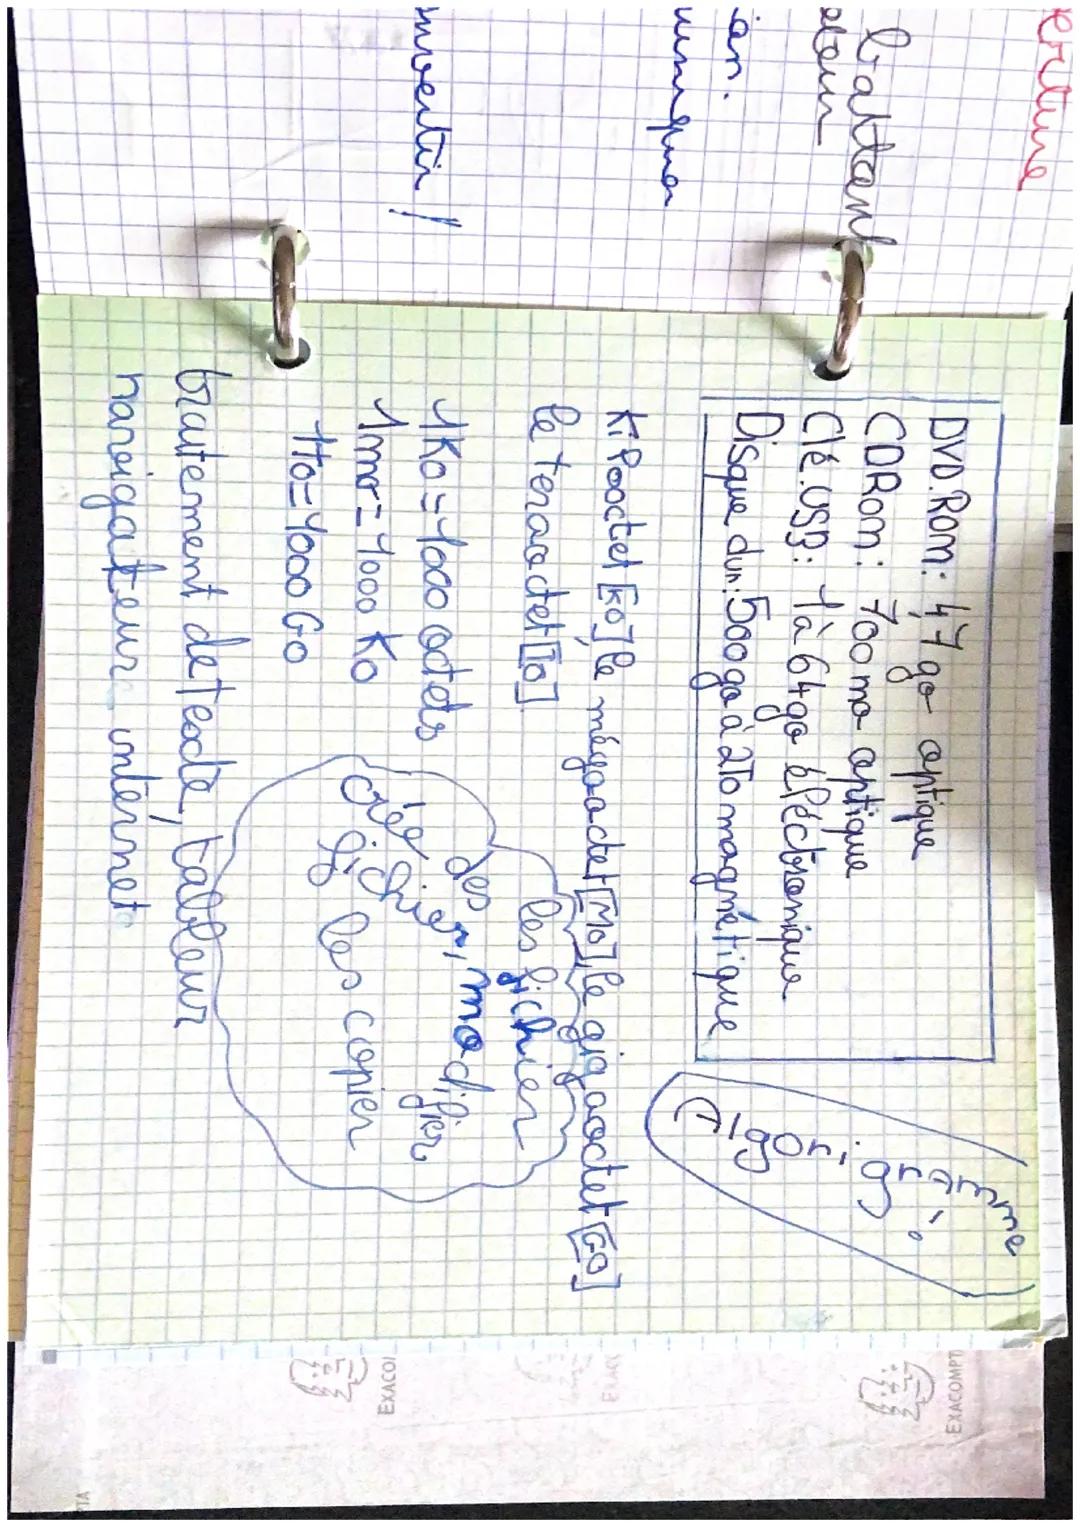 erture
battant
ien.
DVD.Rom: 4,7 go optique
CDRom: 700 mo optique
Clé.USB: 1 à 64go éléctronique
Disque dur: 500go à 2To magnétique
Algori gramme
Kilooctet [Ko], le mégaoctet [Mo], le gigaoctet [Go]
le teraoctet [To].
1Ko = 1000 octets
1mo = 1000 Ko
1to = 1000 Go
les fichier
des
modifier
créé
fichier,
les copier
traitement de texte, tableur
navigateur internet
EXACOMPT
EXACO